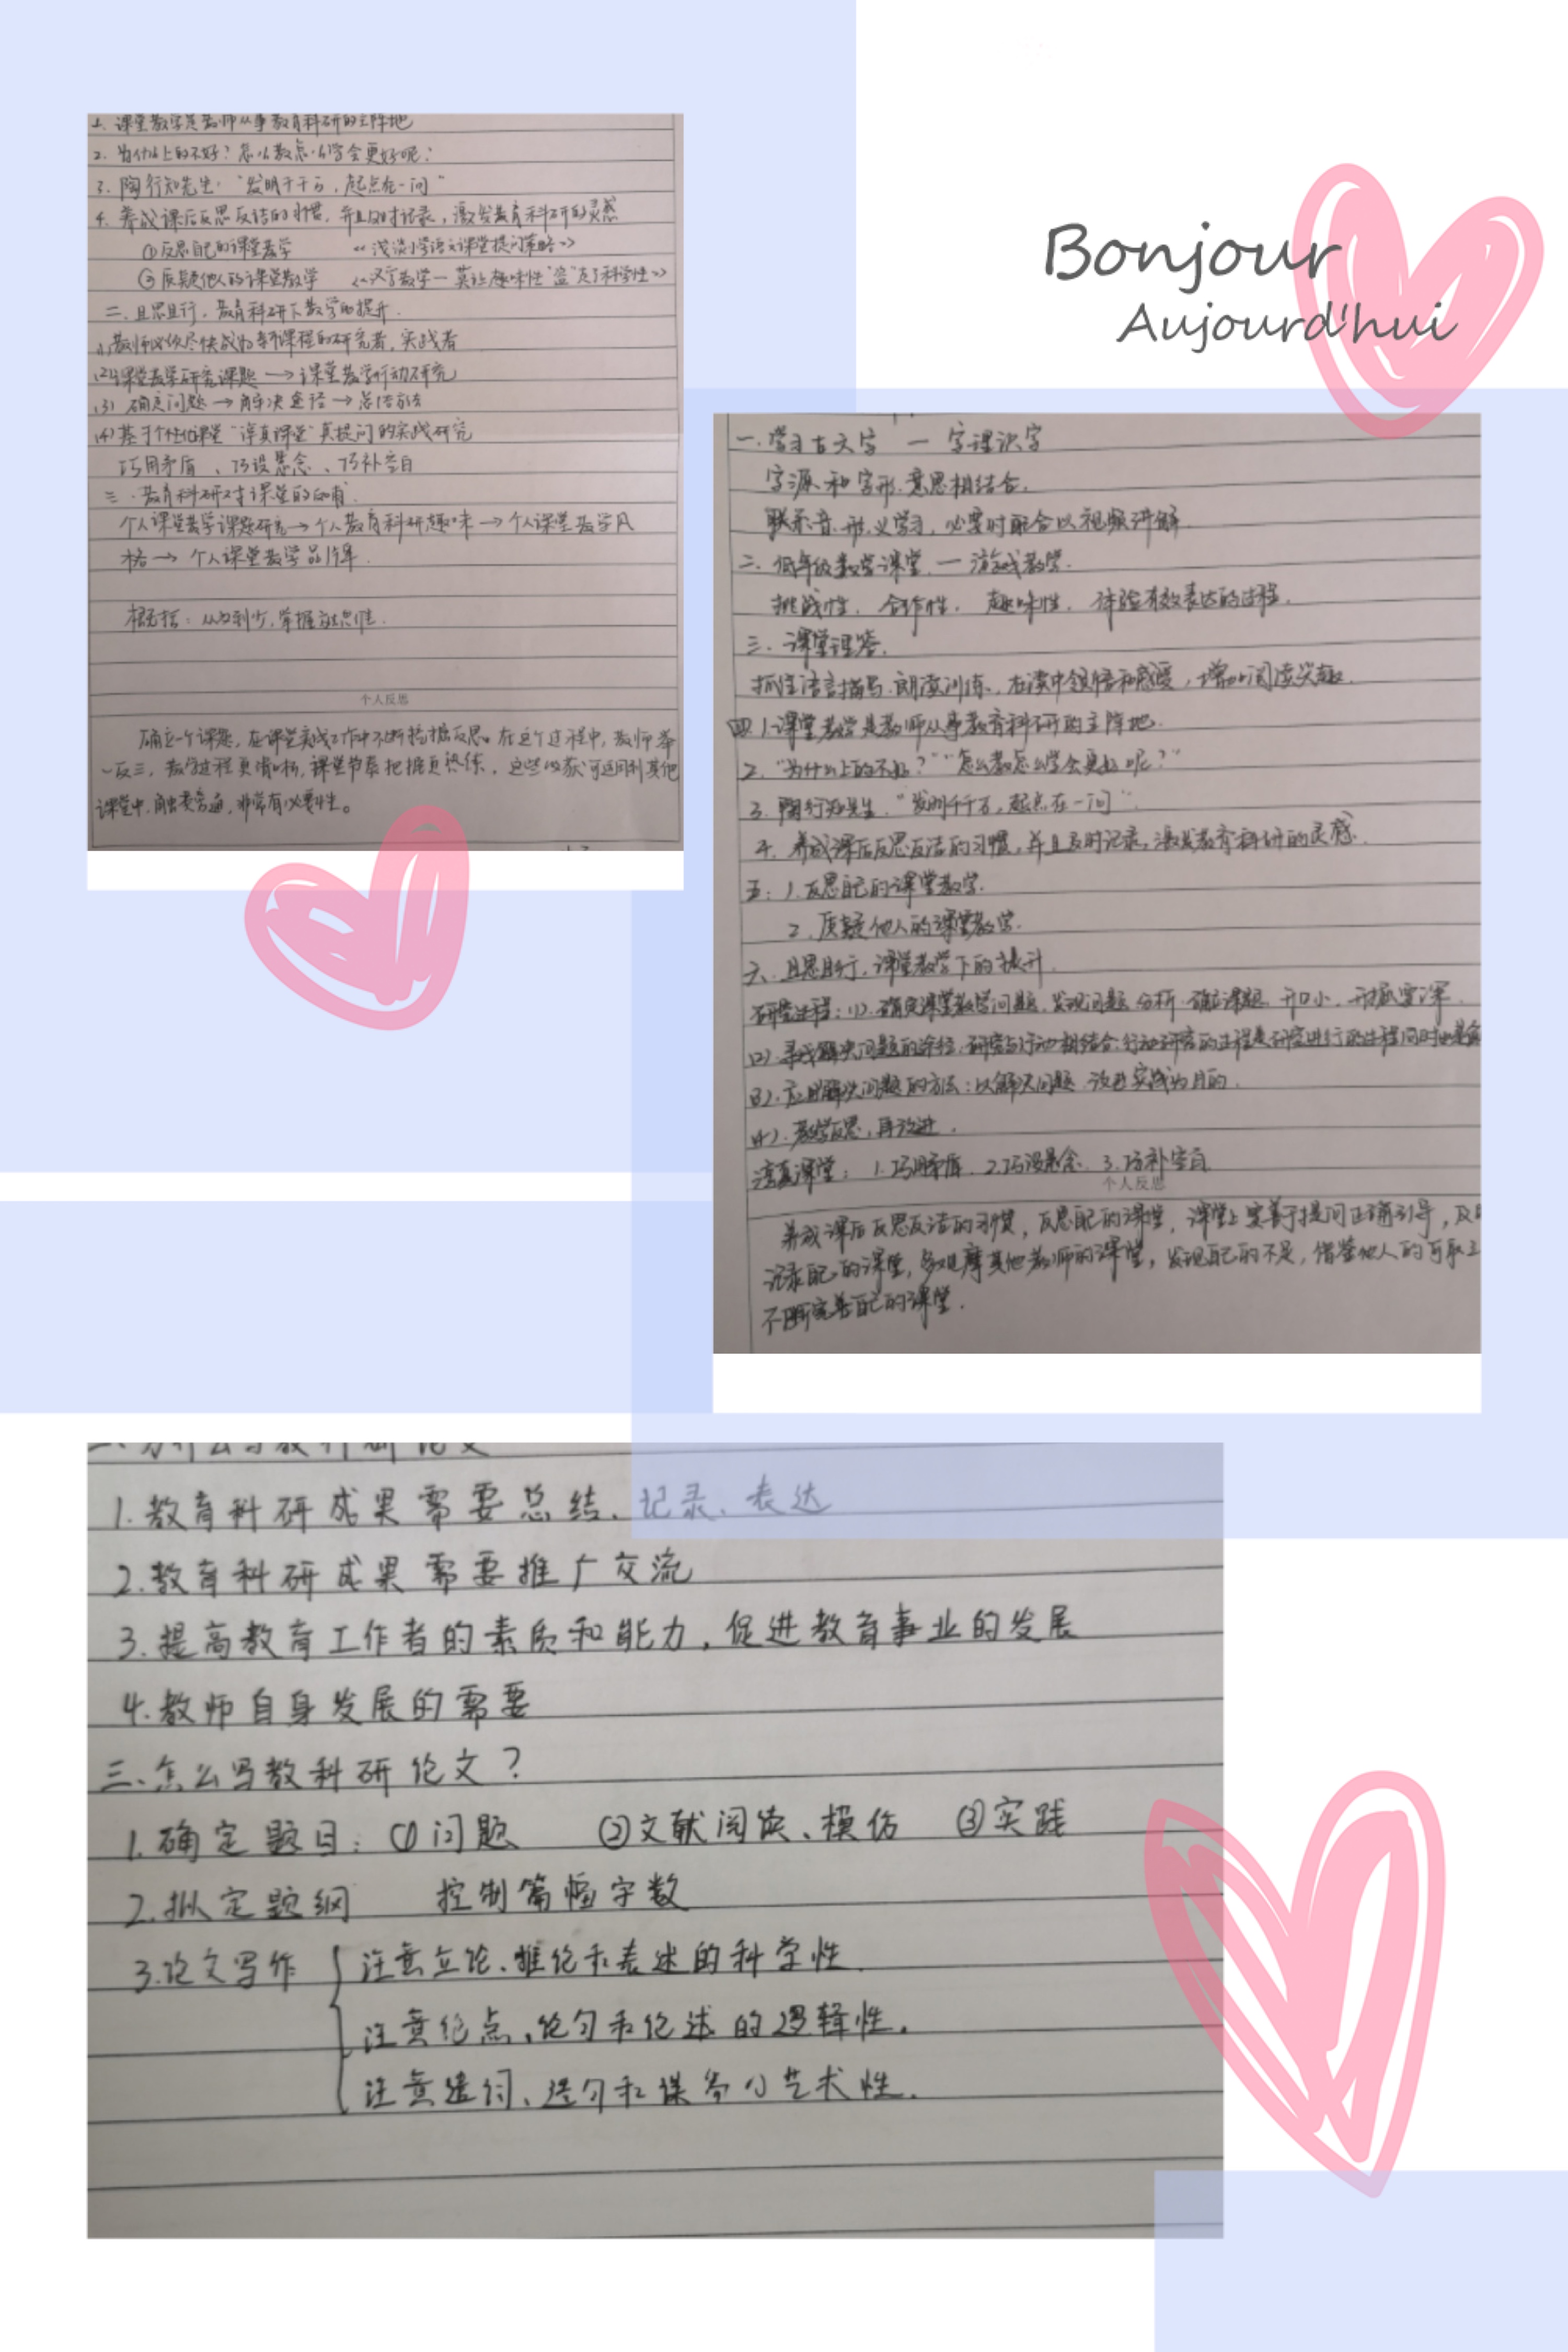 Bonjour
Aujourd'hui
1. 课堂教学是教师从事教育科研的主阵地
2. 为什么上的不好？怎么教怎么学会更好呢？
3. 陶行知先生："发明千千万，起点在一问"
4. 养成课后反思反诘的习惯，并且及时记录，激发教育科研的灵感
①反思自己的课堂教学 《浅谈小学语文课堂提问策略》
②质疑他人的课堂教学 《汉字教学一莫让趣味性"盗"走了科学性》
二、且思且行，教育科研下教学的提升.
(1)教师必须尽快成为新课程的研究者，实践者
课堂教学研究课题→课堂教学行动研究
(3) 确定问题→解决途径→总结方法
(4)基于个性化课堂"淳真课堂"真提问的实践研究
巧用矛盾、巧设悬念、巧补空白
三、教育科研对课堂的
个人课堂教学课题研究→个人教育科研趣味→个人课堂教学风
格→个人课堂教学品牌.
概括：从 到少，掌握 性.
个人反思
确立一个课题，在课堂实践工作中不断挖掘反思。在这个过程中，教师举
一反三，教学过程更清晰，课堂节奏把握更熟练，这些收获可运用到其他
课堂中，融会贯通，非常有必要性。
一. 学习古文字 — 字理识字
字源和字形.意思相结合.
联系音.形.义学习，必要时配合以视频讲解.
二. 低年级教学课堂.—游戏教学.
挑战性. 合作性. 趣味性. 体验有效表达的过程.
三. 课堂理答.
抓住语言描写.朗读训练.在读中领悟和感受，增加阅读兴趣.
四.1.课堂教学是教师从事教育科研的主阵地.
2."为什么上的不好？""怎么教怎么学会更好呢？"
3. 陶行知先生."发明千千万，起点在一问".
4. 养成课后反思反诘的习惯，并且及时记录，激发教育科研的灵感.
五：1.反思自己的课堂教学.
2.质疑他人的课堂教学.
六. 且思且行，课堂教学下的提升.
研究过程：(1).确定课堂教学问题.发现问题 分析.确立课题.开口小.开掘要深.
(2).寻找解决问题的途径.研究与行动相结合.行动研究的过程是研究进行的过程同时也是
(3).应用解决问题的方法：以解决问题.改进实践为目的.
(4).教学反思，再改进.
淳真课堂：1.巧用矛盾 2.巧设悬念 3.巧补空白
个人反思
养成课后反思反诘的习惯，反思自己的课堂，课堂上要善于提问正确引导，及
记录自己的课堂，多观摩其他教师的课堂，发现自己的不足，借鉴他人的可取
不断完善自己的课堂.
二、为什么写教科研论文
1.教育科研成果需要总结、记录、表达
2.教育科研成果需要推广交流
3.提高教育工作者的素质和能力，促进教育事业的发展
4.教师自身发展的需要
三、怎么写教科研论文？
1.确定题目：①问题 ②文献阅读、模仿 ③实践
2.拟定题纲 控制篇幅字数
3.论文写作 注意立论、推论和表述的科学性.
注意论点、论句和论述的逻辑性.
注意遣词、造句和谋篇的艺术性.